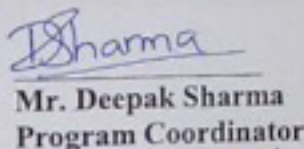 DSharma
Mr. Deepak Sharma
Program Coordinator